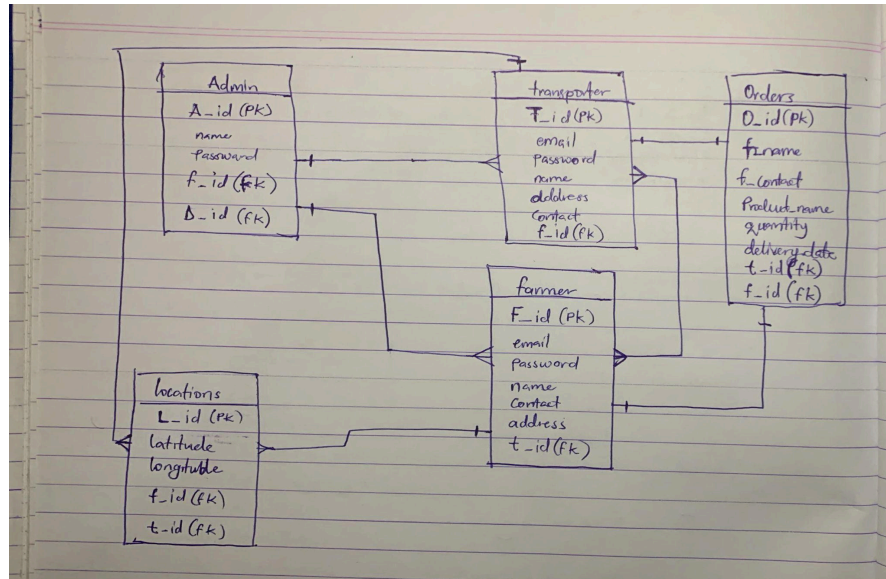 Admin
A_id (PK)
name
Password
f_id (fk)
D_id (fk)
transporter
T_id (PK)
email
Password
name
address
Contact
f_id (fk)
Orders
O_id (PK)
f_name
f_contact
Product_name
quantity
delivery_date
t_id (fk)
f_id (fk)
farmer
F_id (PK)
email
password
name
Contact
address
t_id (fk)
locations
L_id (PK)
latitude
longitube
f_id (fk)
t_id (fk)